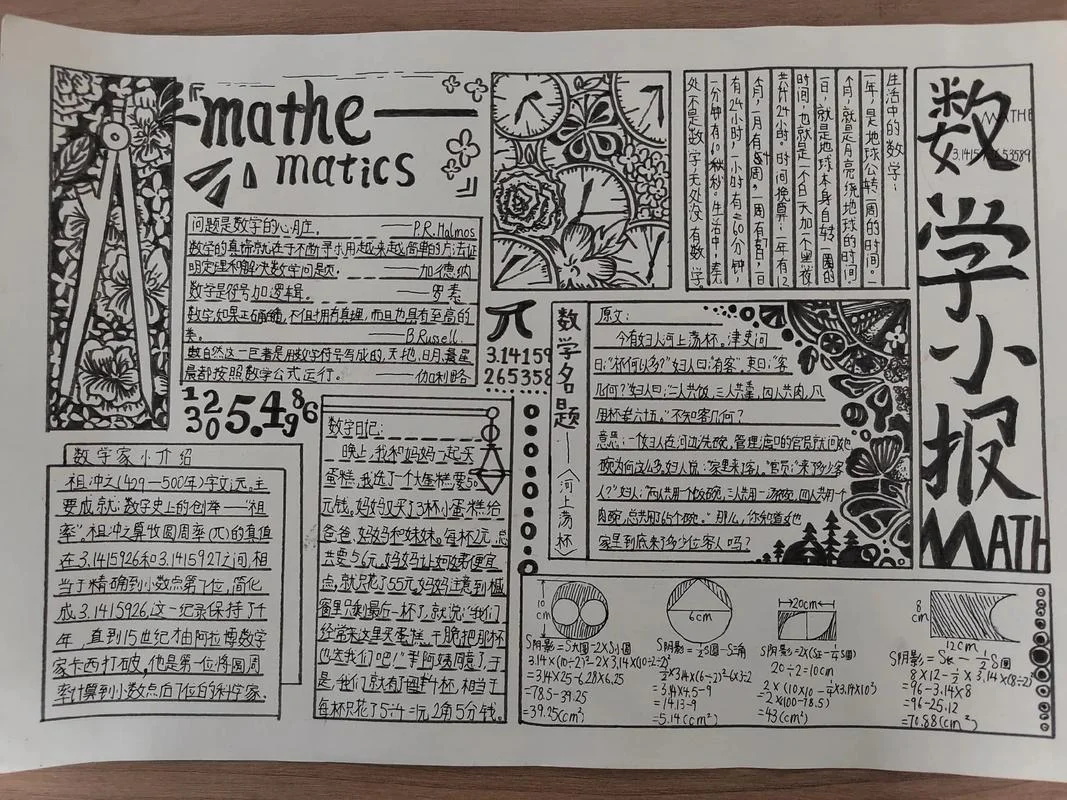 mathe
matics
问题是数学的心脏。 ——P.R.Halmos
数学的真谛就在于不断寻求用越来越简单的方法证
明定理和解决数学问题。 ——加德纳
数学是符号加逻辑。 ——罗素
数学,如果正确看待,不但拥有真理,而且也具有至高的
美。 ——B.Russell.
数自然这一巨著是用数学符号写成的,天,地,日,月,星
辰都按照数学公式运行。 ——伽利略
生活中的数学:
一年,是地球公转一周的时间。一
个月,就是月亮绕地球的时间。
一日,就是地球本身自转一圈的
时间,也就是一个白天加个黑夜
共计24小时。时间换算:一年有12
个月,一月有4周。一周有7日,一日
有24小时,一小时有60分钟,
一分钟有60秒。生活中,真
处不是数学,无处没有数学
数学小报
MATH
3.1415 53589
MATH
π
3.14159
265358
1 2 5.4 8 6
3 0 9
数学家小介绍
祖冲之(429—500年)字文远。主
要成就:数学史上的创举——"祖
率",祖冲之算出圆周率(π)的真值
在3.1415926和3.1415927之间,相
当于精确到小数点第7位,简化
成3.1415926,这一纪录保持了千
年,直到15世纪才由阿拉伯数学
家卡西打破,他是第一位将圆周
率计算到小数点后7位的科学家.
数学日记:
晚上,我和妈妈一起去
蛋糕,我选了一个大蛋糕
元钱,妈妈又买了3杯小蛋糕给
爸爸、妈妈和妹妹。每杯2元,总
共要56元,妈妈让
点,就只花了55元,妈妈注意到橱
窗里只剩最后一杯了,就说:"我们
经常来这里买蛋糕,干脆把那杯
也送我们吧!"
是,我们就有了 4杯,相当于
每杯只花了5÷4=1元2角5分钱。
数学名题——《河上荡杯》
原文:
今有妇人河上荡杯。津吏问
曰:"杯何以多?"妇人曰:"有客"。吏曰:"客
几何?"妇人曰:"二人共饭,三人共羹,四人共肉,凡
用杯六十五。"不知客几何?
意思:一位妇人在河边洗碗,管理渡口的官员就问她
碗为何这么多,妇人说:"家里来了客人,"官员:"来了多少客
人?"妇人:"两人共用一个饭碗,三人共用一汤碗,四人共用一个
肉碗,总共用65个碗。"那么,你知道她
家里到底来了多少位客人吗?
10
cm
S阴影=S大圆-2×S小圆
3.14×(10÷2)²-2×3.14×(10÷2÷2)²
=3.14×25-6.28×6.25
=78.5-39.25
=39.25(cm²)
6cm
S阴影=½S圆-S三角
½×3.14×(6÷2)²-6×3÷2
=3.14×4.5-9
=14.13-9
=5.14(cm²)
20cm
S阴影=2×(S正-¼S圆)
20÷2=10cm
2×(10×10-¼×3.14×10²)
=2×(100-78.5)
=43(cm²)
8
cm
12cm
S阴影=S长-½S圆
8×12-½×3.14×(8÷2)²
=96-3.14×8
=96-25.12
=70.88(cm²)